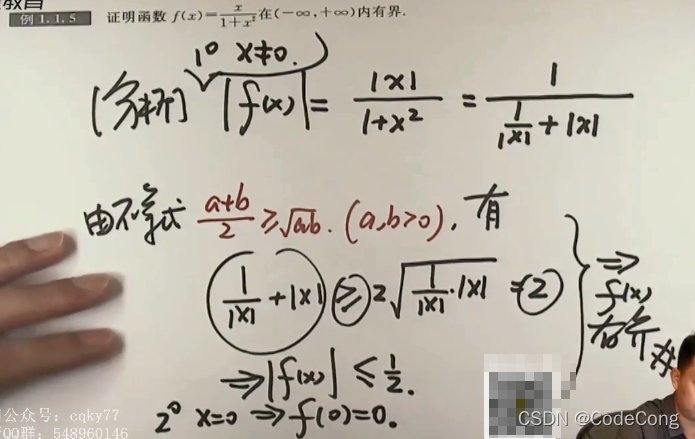 教育
例 1.1.5 证明函数 f(x)=x/(1+x²)在(−∞,+∞)内有界.
1° x≠0.
[分析] |f(x)| = |x|/(1+x²) = 1/(1/|x|+|x|)
由不等式 (a+b)/2 ≥ √ab. (a,b>0), 有
1/|x| + |x| ≥ 2√(1/|x|·|x|) = 2
⇒ |f(x)| ≤ 1/2.
2° x=0 ⇒ f(0)=0.
⇒
f(x)
有界 #
公众号: cqky77
QQ群: 548960146
CSDN @CodeCong